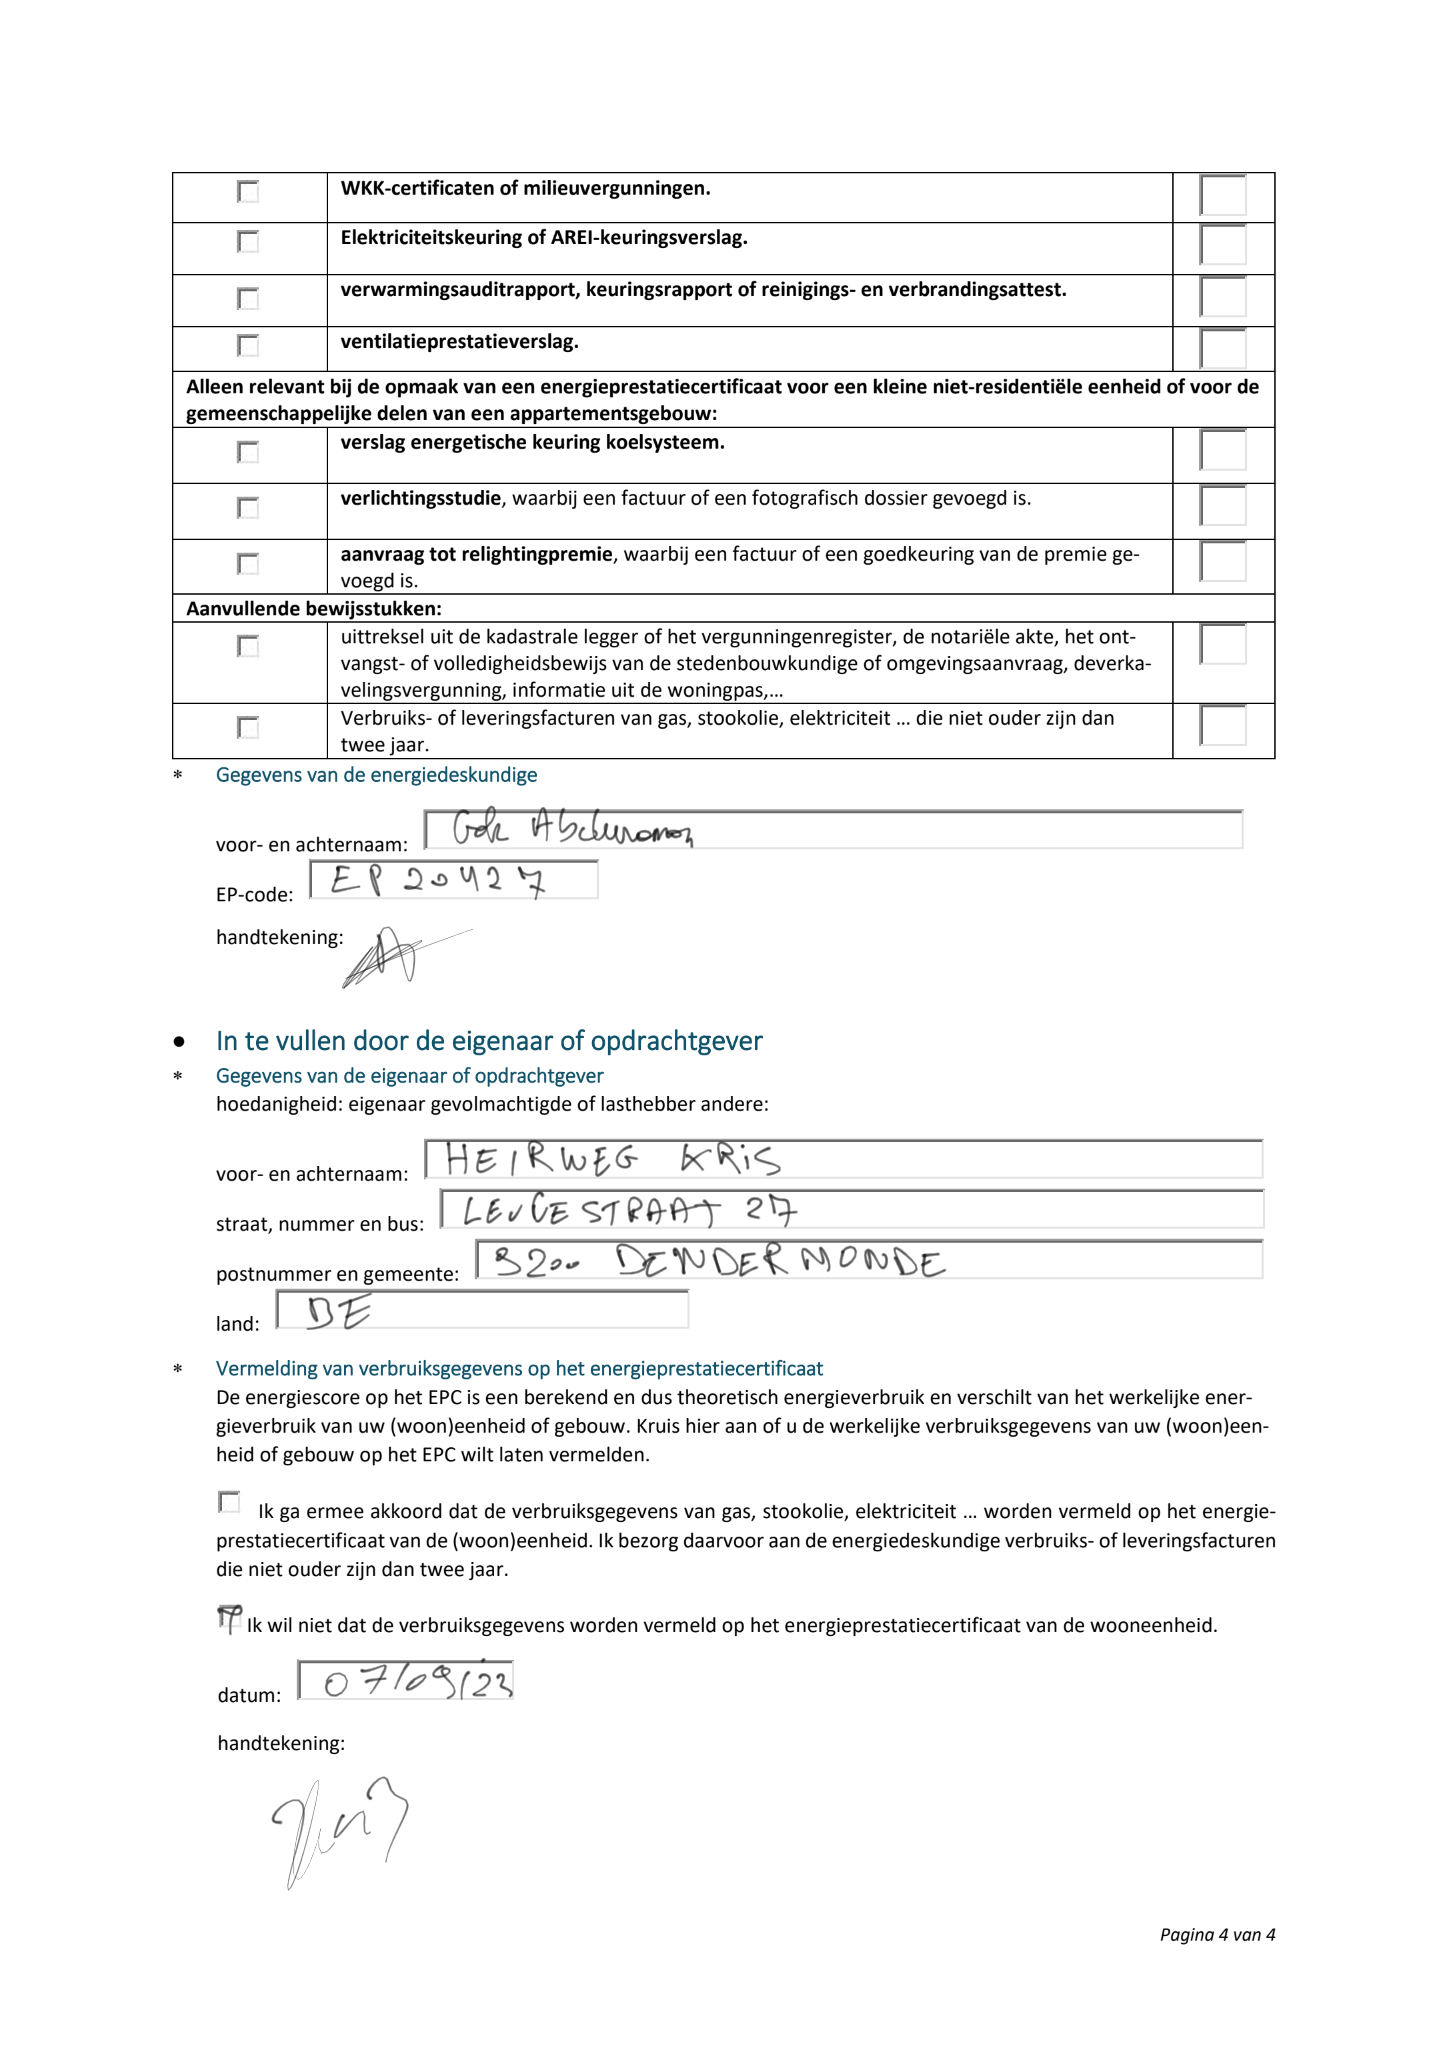 WKK-certificaten of milieuvergunningen.
Elektriciteitskeuring of AREI-keuringsverslag.
verwarmingsauditrapport, keuringsrapport of reinigings- en verbrandingsattest.
ventilatieprestatieverslag.
Alleen relevant bij de opmaak van een energieprestatiecertificaat voor een kleine niet-residentiële eenheid of voor de
gemeenschappelijke delen van een appartementsgebouw:
verslag energetische keuring koelsysteem.
verlichtingsstudie, waarbij een factuur of een fotografisch dossier gevoegd is.
aanvraag tot relightingpremie, waarbij een factuur of een goedkeuring van de premie ge-
voegd is.
Aanvullende bewijsstukken:
uittreksel uit de kadastrale legger of het vergunningenregister, de notariële akte, het ont-
vangst- of volledigheidsbewijs van de stedenbouwkundige of omgevingsaanvraag, deverka-
velingsvergunning, informatie uit de woningpas,…
Verbruiks- of leveringsfacturen van gas, stookolie, elektriciteit … die niet ouder zijn dan
twee jaar.
* Gegevens van de energiedeskundige
voor- en achternaam:
EP-code: EP 20427
handtekening:
• In te vullen door de eigenaar of opdrachtgever
* Gegevens van de eigenaar of opdrachtgever
hoedanigheid: eigenaar gevolmachtigde of lasthebber andere:
voor- en achternaam: HEIRWEG KRiS
straat, nummer en bus: 27
postnummer en gemeente: 9200 DENDERMONDE
land: BE
* Vermelding van verbruiksgegevens op het energieprestatiecertificaat
De energiescore op het EPC is een berekend en dus theoretisch energieverbruik en verschilt van het werkelijke ener-
gieverbruik van uw (woon)eenheid of gebouw. Kruis hier aan of u de werkelijke verbruiksgegevens van uw (woon)een-
heid of gebouw op het EPC wilt laten vermelden.
Ik ga ermee akkoord dat de verbruiksgegevens van gas, stookolie, elektriciteit … worden vermeld op het energie-
prestatiecertificaat van de (woon)eenheid. Ik bezorg daarvoor aan de energiedeskundige verbruiks- of leveringsfacturen
die niet ouder zijn dan twee jaar.
Ik wil niet dat de verbruiksgegevens worden vermeld op het energieprestatiecertificaat van de wooneenheid.
datum: 07/09/23
handtekening:
Pagina 4 van 4